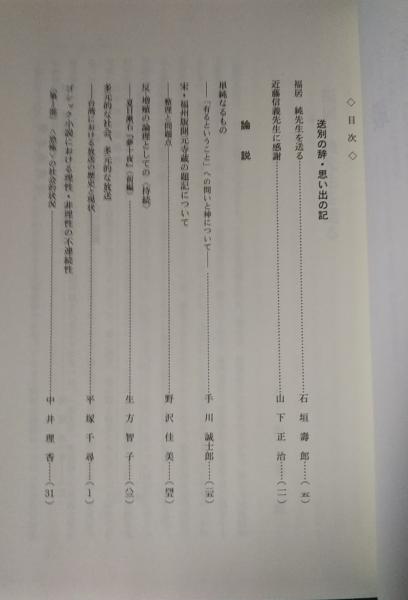 ◇ 目 次 ◇
送別の辞・思い出の記
福居 純先生を送る……石 垣 壽 郎……(五)
近藤信義先生に感謝……山 下 正 治……(一一)
論 説
単純なるもの
――「有るということ」への問いと神について――……手 川 誠士郎……(一五)
宋・福州版開元寺蔵の題記について
――整理と問題点……野 沢 佳 美……
反＝増殖の論理としての〈持続〉
――夏目漱石『夢十夜』(前編)……生 方 智 子……
多元的な社会、多元的な放送
――台湾における放送の歴史と現状……平 塚 千 尋……(1)
ゴシック小説における理性・非理性の不連続性
〈第Ⅰ部〉〈恐怖〉の社会的状況……中 井 理 香……(31)